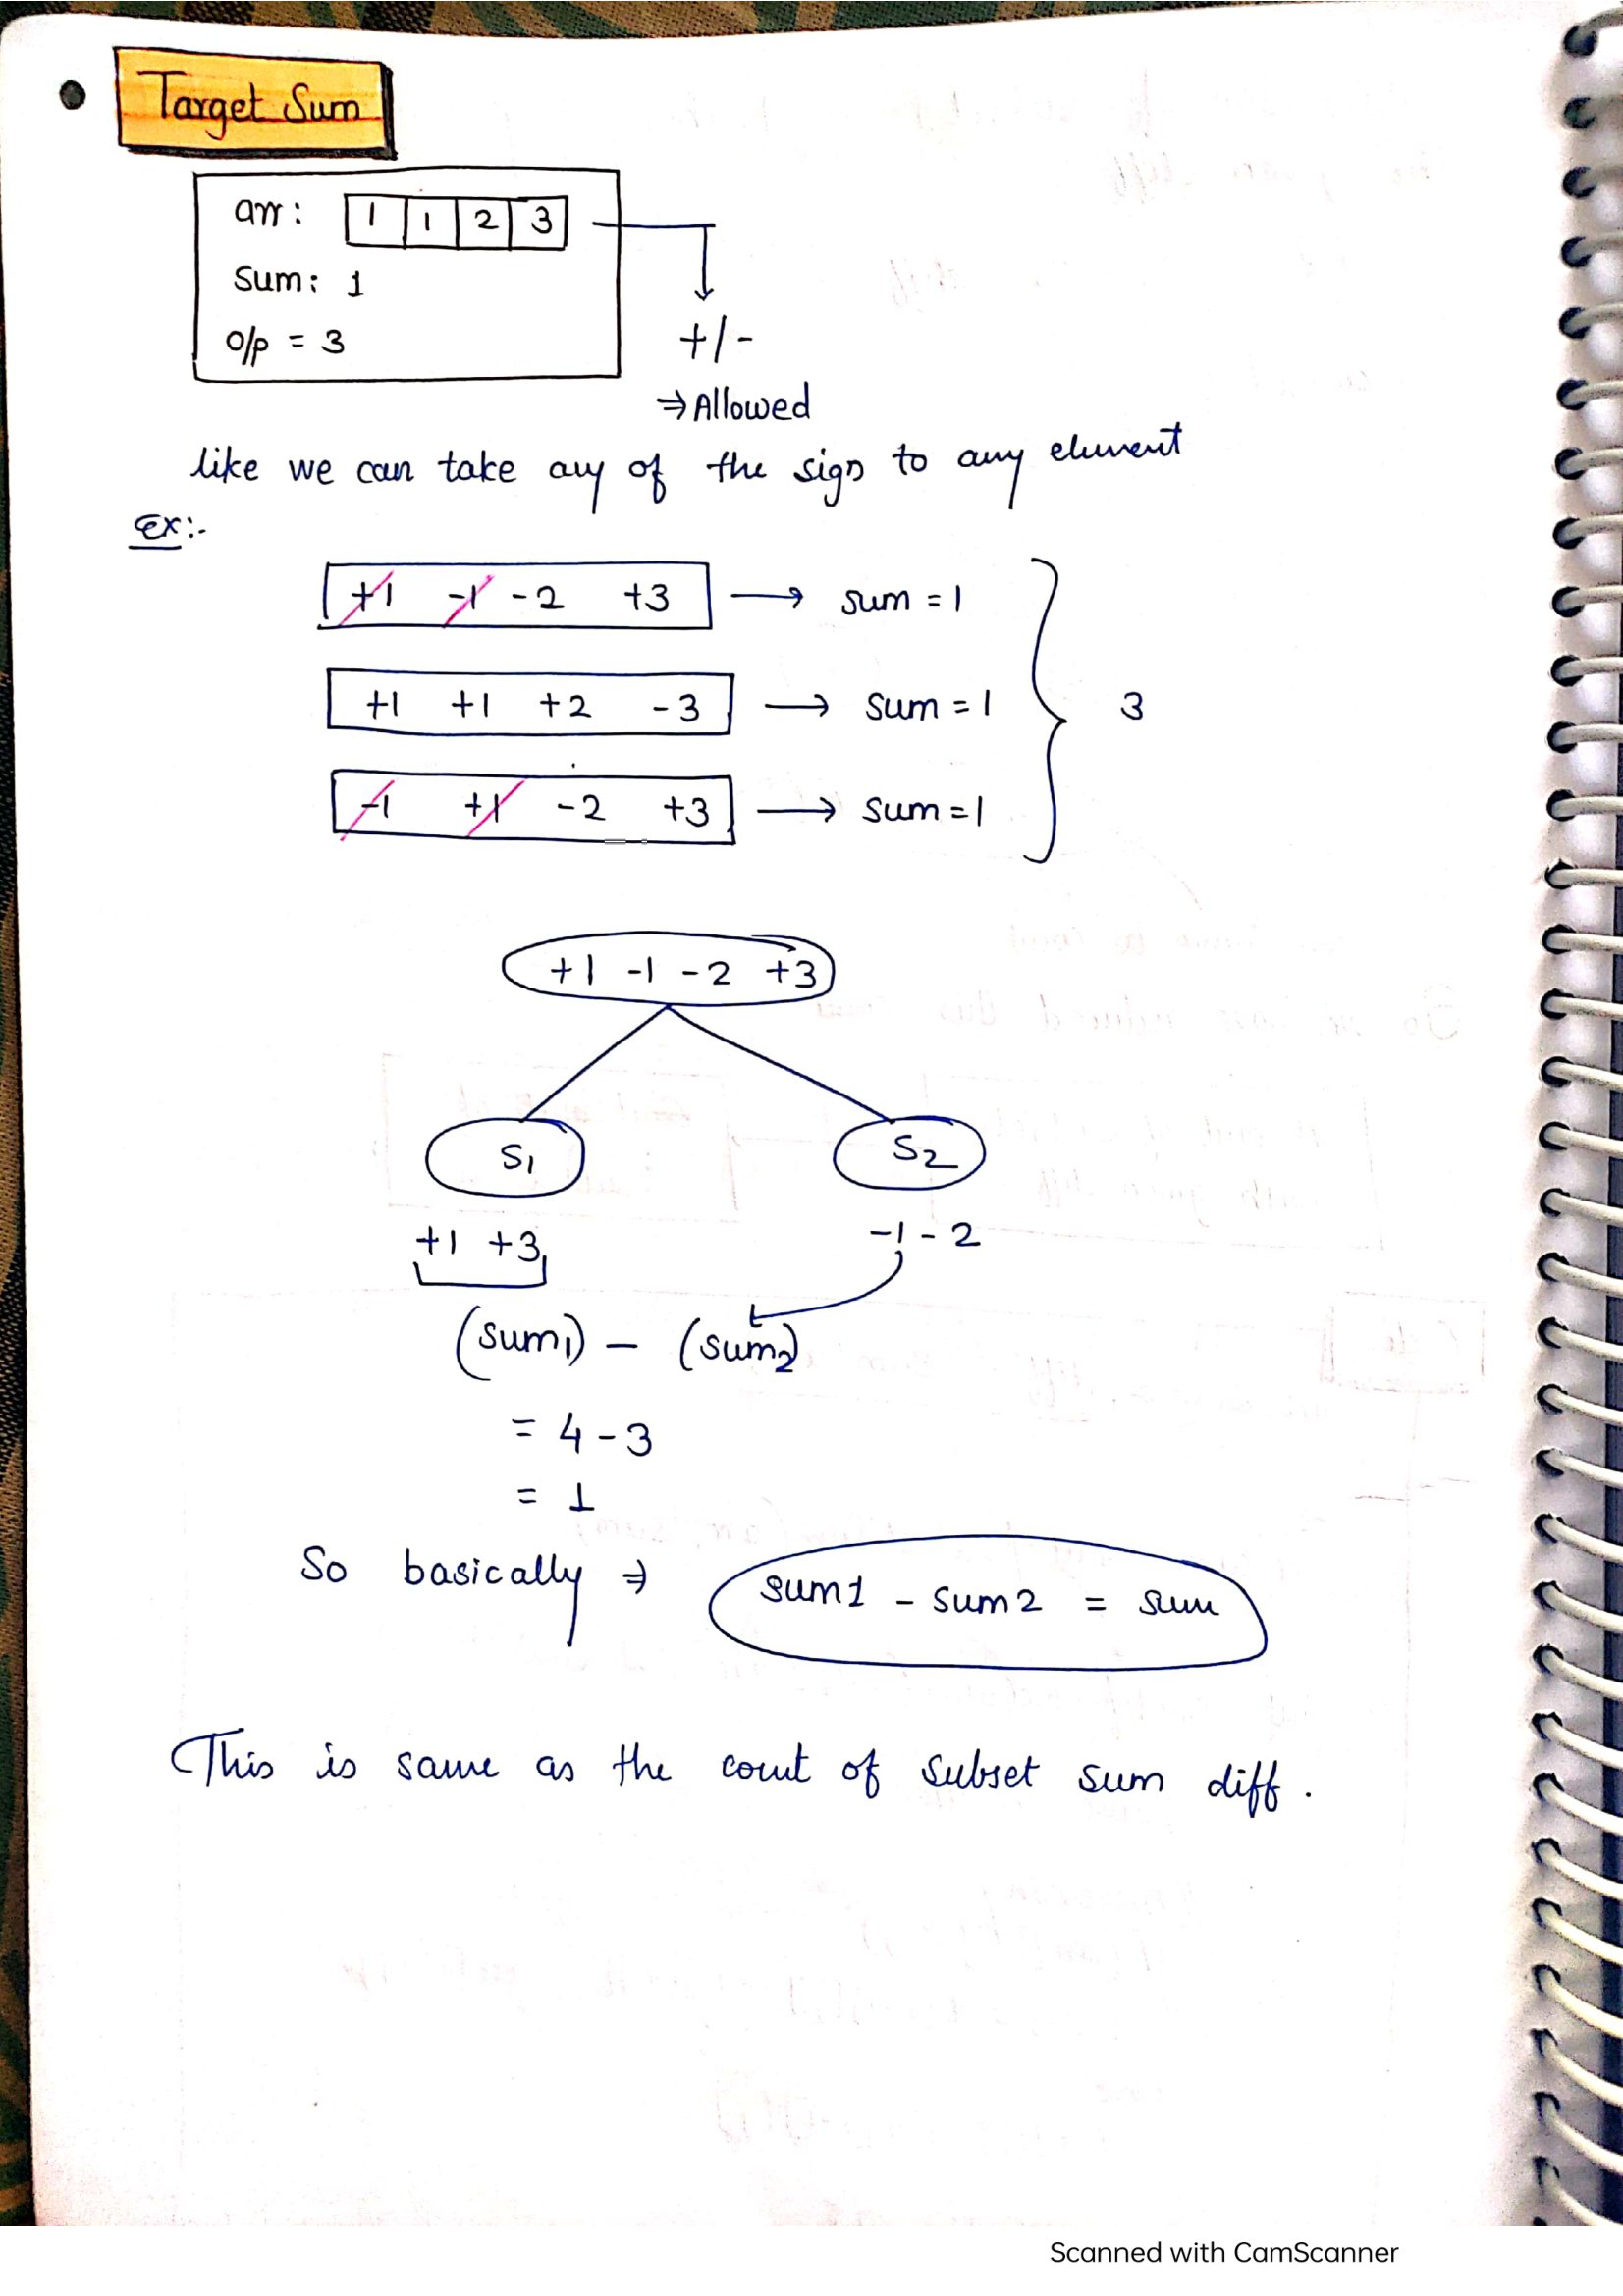 Target Sum
arr: 1 1 2 3
Sum: 1
O/p = 3
+/-
⇒ Allowed
like we can take any of the sign to any element
Ex:-
+1 -1 -2 +3 → sum = 1
+1 +1 +2 -3 → sum = 1
3
-1 +1 -2 +3 → sum = 1
+1 -1 -2 +3
S1 S2
+1 +3 -1 -2
(sum1) - (sum2)
= 4 - 3
= 1
So basically ⇒ sum1 - sum2 = sum
This is same as the count of subset sum diff.
Scanned with CamScanner